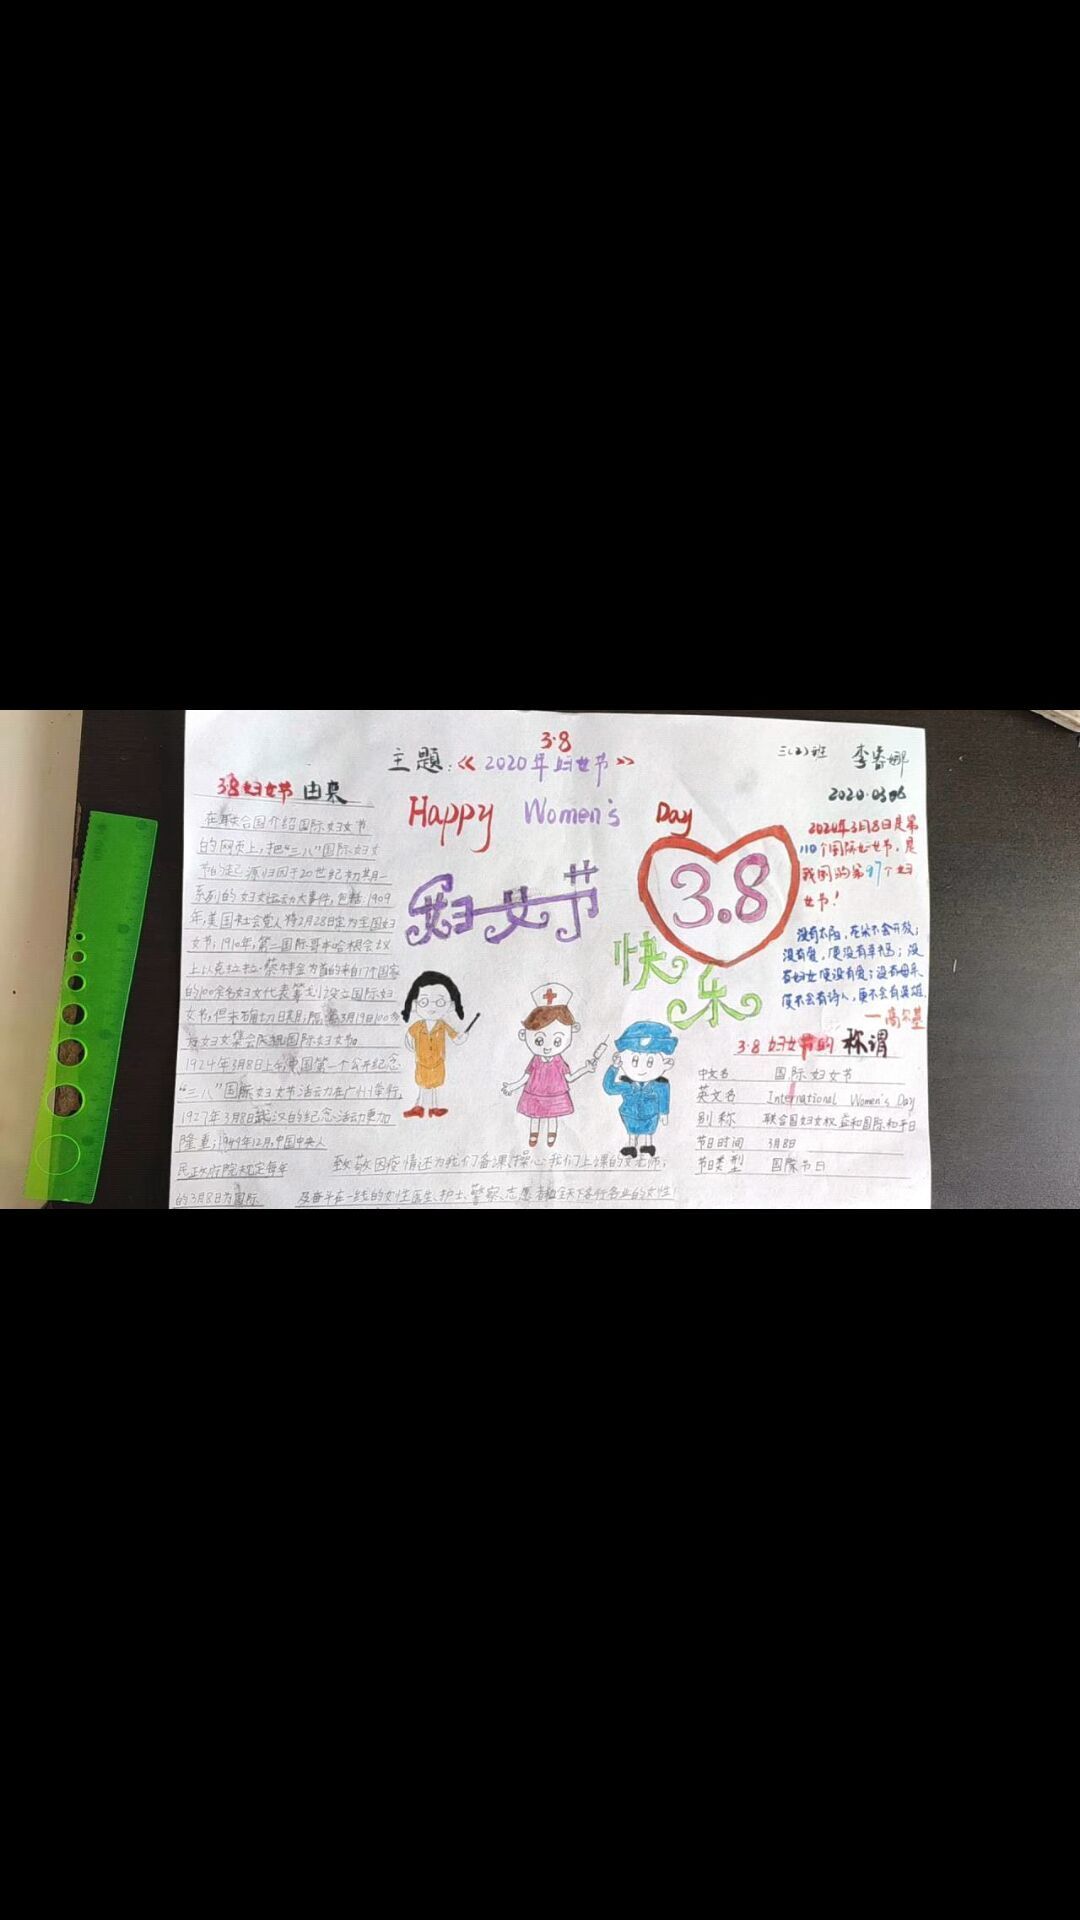 3·8
主题:《2020年妇女节》
三(2)班 李睿娜
2020.0306
Happy Women's Day
妇女节
3.8
快乐
3.8妇女节 由来
在联合国介绍国际妇女节
的网页上,把“三八”国际妇女
节的起源归因于20世纪初期一
系列的妇女运动大事件,包括:1909
年,美国社会党人将2月28日定为全国妇
女节;1910年,第二国际哥本哈根会议
上以克拉拉·蔡特金为首的来自17个国家
的100余名妇女代表筹划设立国际妇
女节,但未确切日期;
3月19日100多
妇女集会庆祝国际妇女节。
1924年3月8日
国第一个公开纪念
“三八”国际妇女节活动在广州举行,
1927年3月8日
的纪念活动更加
隆重;1949年12月,中国中央人
民政府院规定每年
的3月8日为国际
致敬因疫情还为我们备课,操心我们上课的女老师;
及奋斗在一线的女性医生、护士、警察、志愿者和全天下各行各业的女性!
年3月8日是第
110个国际妇女节,是
我国的第97个妇
女节!
没有太阳,花朵不会开放;
没有爱,便没有幸福;没
有妇女便没有爱;没有母亲,
便不会有诗人,更不会有英雄.
—高尔基
3·8 妇女节的 称谓
中文名 国际妇女节
英文名 International Women's Day
别称 联合国妇女权益和国际和平日
节日时间 3月8日
节日类型 国际节日